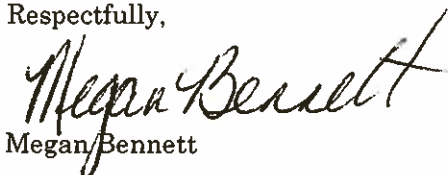 Respectfully,
Megan Bennett
Megan Bennett